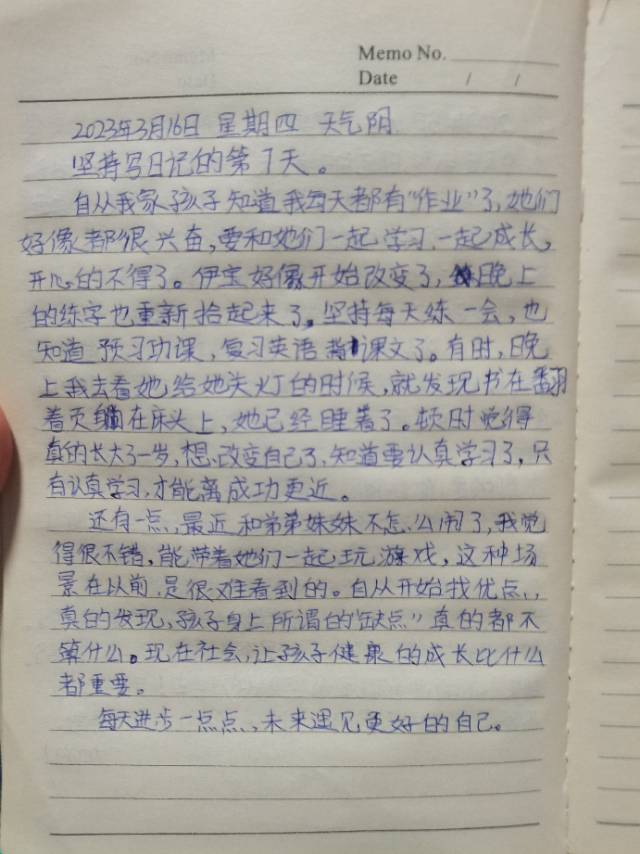 Memo No.
Date / /
2023年3月16日 星期四 天气阴
坚持写日记的第7天。
自从我家孩子知道我每天都有“作业”了,她们
好像都很兴奋,要和她们一起学习,一起成长,
开心的不得了。伊宝好像开始改变了,晚上
的练字也重新拾起来了。坚持每天练一会,也
知道预习功课,复习英语背课文了。有时,晚
上我去看她给她关灯的时候,就发现书在翻
着页躺在床头上,她已经睡着了。顿时觉得
真的长大了一岁,想改变自己了,知道要认真学习了,只
有认真学习,才能离成功更近。
还有一点,最近和弟弟妹妹不怎么闹了,我觉
得很不错,能带着她们一起玩游戏,这种场
景在以前是很难看到的。自从开始找优点,
真的发现,孩子身上所谓的“缺点”真的都不
算什么。现在社会,让孩子健康的成长比什么
都重要。
每天进步一点点,未来遇见更好的自己。